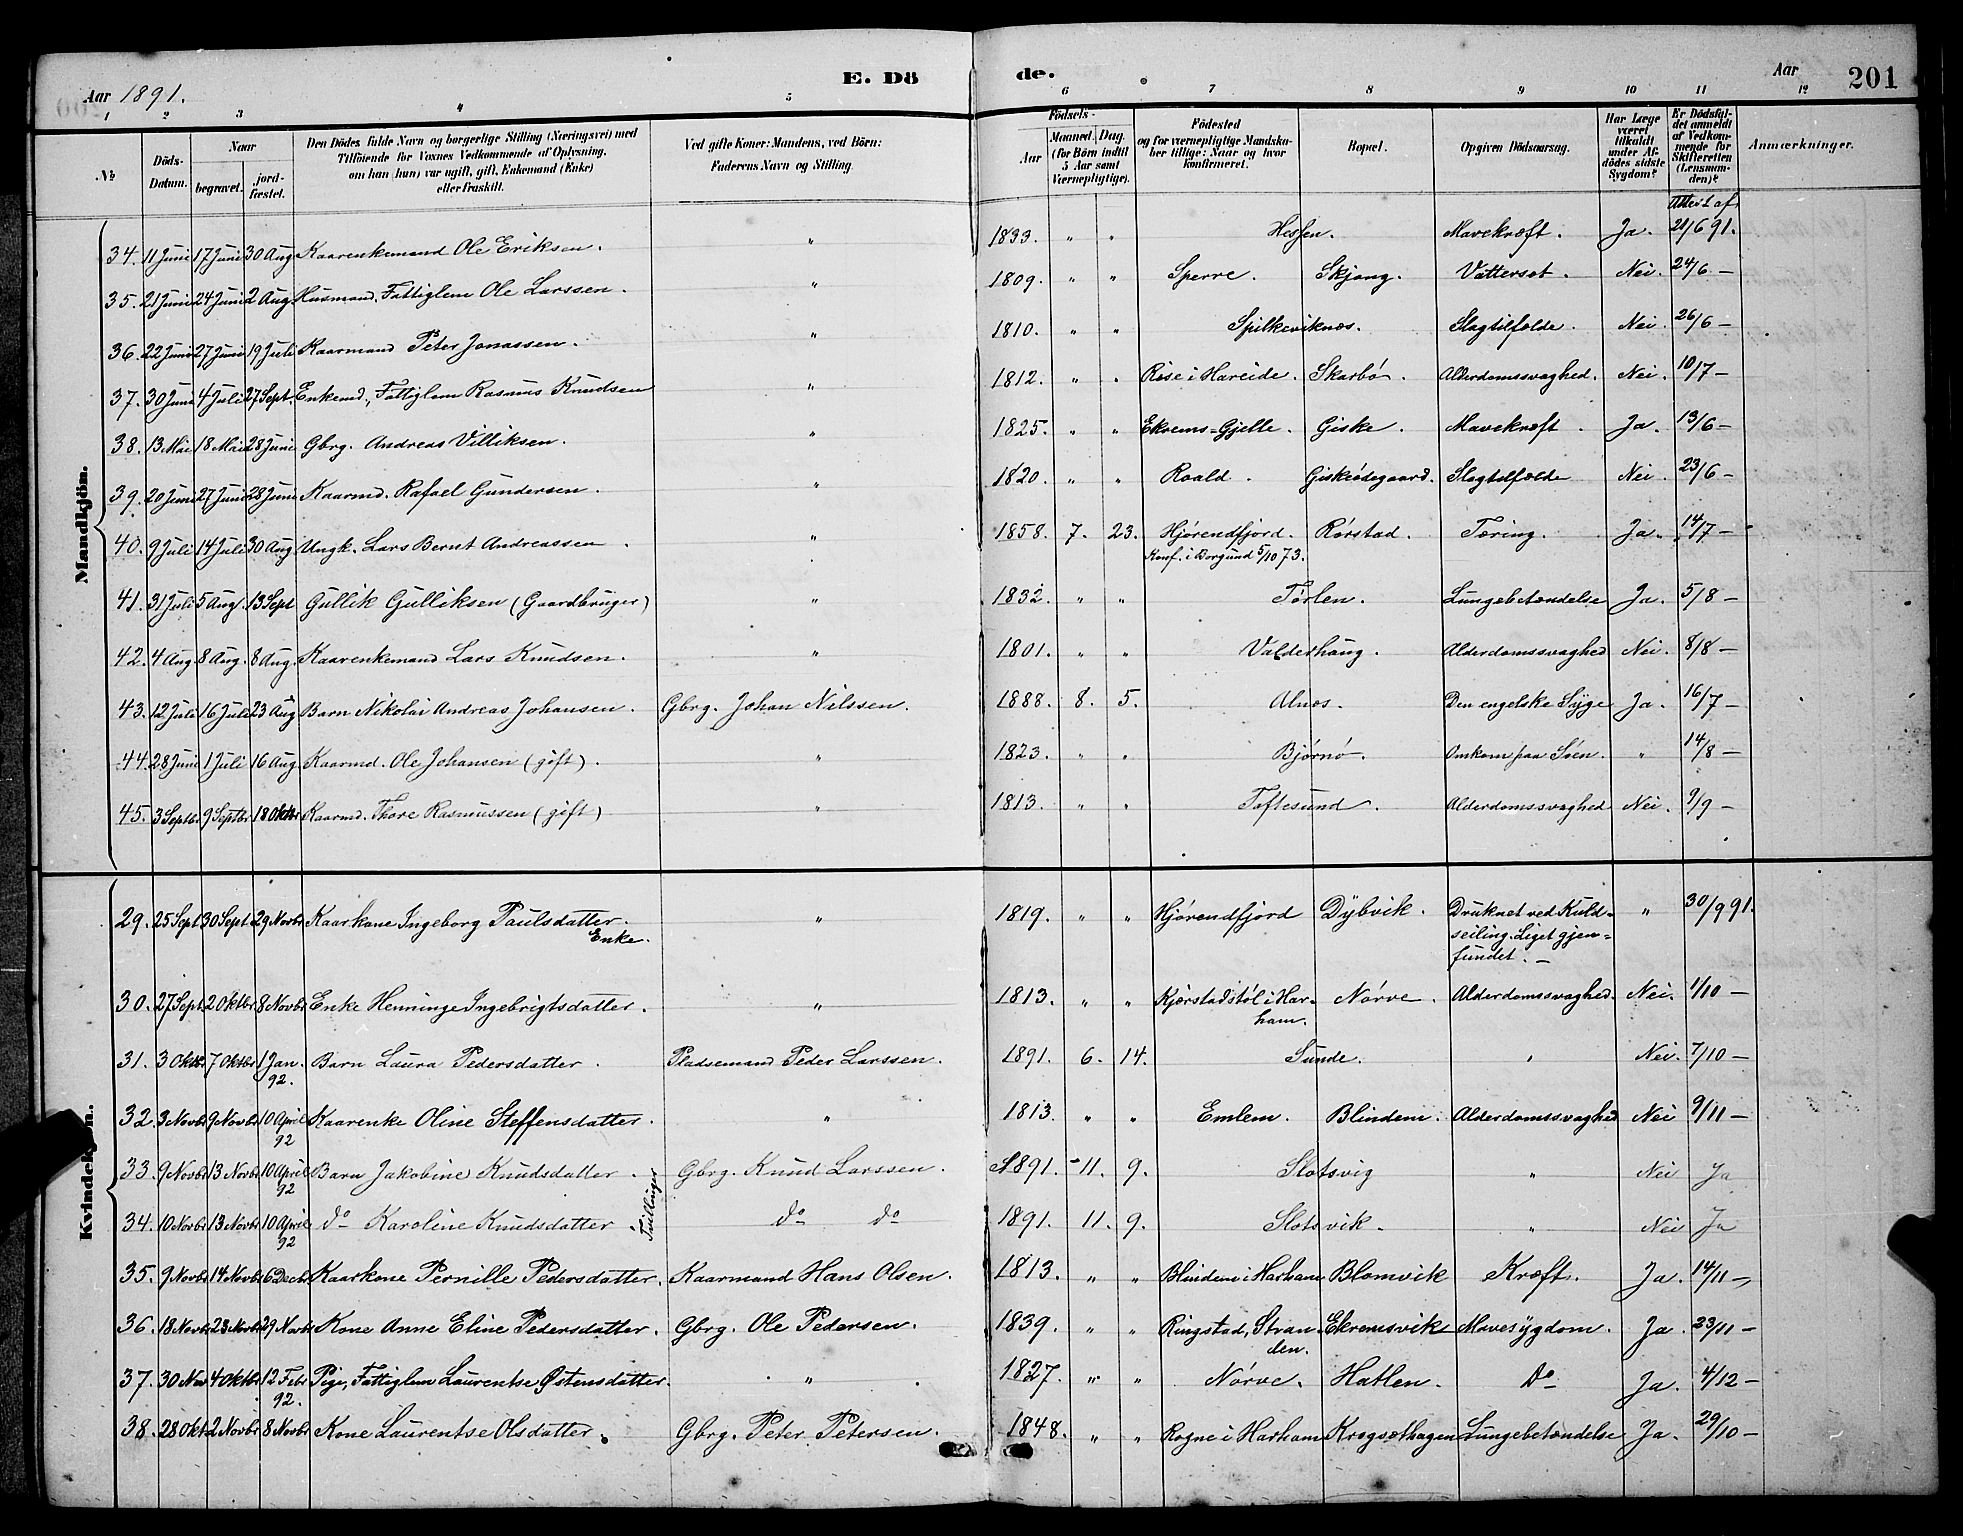 Aar 1891.
E. Dö
de.
Aar
201
1 2 3 4 5 6 7 8 9 10 11 12
№
Döds-Datum.
Naar
begravet.
jord-fæstet.
Den Dödes fulde Navn og borgerlige Stilling (Næringsvei) med
Tilföiende for Voxnes Vedkommende af Oplysning,
om han (hun) var ugift, gift, Enkemand (Enke)
eller fraskilt.
Ved gifte Koner: Mandens, ved Börn:
Faderens Navn og Stilling.
Födsels-
Aar
Maaned. Dag.
(for Börn indtil
5 Aar samt
Værnepligtige).
Födested
og for værnepligtige Mandska-
ber tillige: Naar og hvor
konfirmeret.
Bopæl.
Opgiven Dödsaarsag.
Har Læge
været
tilkaldt
under Af-
dödes sidste
Sygdom?
Er Dödsfal-
det anmeldt
af Vedkom-
mende for
Skifteretten
(Lensman-
den)?
Anmærkninger.
Attest af
Mandkjön.
34. 11 Juni 17 Juni 30 Aug Kaarenkemand Ole Eriksen. " 1833. " " Hessen. Mavekræft. Ja. 21/6 91.
35. 21 Juni 24 Juni 2 Aug Husmand, Fattiglem Ole Larssen. " 1809. " " Sperre. Skjong. Vattersot. Nei. 24/6 —
36. 22 Juni 27 Juni 19 Juli Kaarmand Peter Jonassen. " 1810. " " Spilkeviknæs. Slagtilfælde. Nei. 26/6 —
37. 30 Juni 4 Juli 27 Sept. Enkemd., Fattiglem Rasmus Knudsen " 1812. " " Rise i Hareide. Skarbø. Alderdomssvaghed. Nei. 10/7 —
38. 13 Mai 18 Mai 28 Juni Gbrg. Andreas Villiksen. " 1825. " " Ekrems-Gjelle. Giske. Mavekræft. Ja. 13/6 —
39. 20 Juni 27 Juni 28 Juni Kaarmd. Rafael Gundersen. " 1820. " " Roald. Giskeødegaard. Slagtilfælde Nei. 23/6 —
40. 9 Juli 14 Juli 30 Aug Ungk. Lars Bernt Andreassen. " 1858. 7. 23. Hjørendfjord. Rørstad. Tæring. Ja. 14/7 —
Konf. i Borgund 5/10 73.
41. 31 Juli 5 Aug. 13 Sept Gullik Gulliksen (Gaardbruger) " 1832. " " Tørlen. Lungebetændelse Ja. 5/8 —
42. 4 Aug 8 Aug. 8 Aug. Kaarenkemand Lars Knudsen. " 1801. " " Valderhaug. Alderdomssvaghed Nei. 8/8 —
43. 12 Juli 16 Juli 23 Aug Barn Nikolai Andreas Johansen. Gbrg. Johan Nilssen. 1888. 8. 5. Alnæs. Den engelske Syge Ja. 16/7 —
44. 28 Juni 1 Juli 16 Aug. Kaarmd. Ole Johansen (gift). " 1823. " " Bjørnø. Omkom paa Søen. " 14/8 —
45. 3 Septbr 9 Septbr 18 Oktbr Kaarmd. Thore Rasmussen (gift) " 1813. " " Toftesund. Alderdomssvaghed Nei. 9/9 —
Kvindekjön.
29. 25 Sept 30 Sept 29 Novbr Kaarkone Ingeborg Paulsdatter. " 1819. " " Hjørendfjord Dybvik. Druknet ved Kuld- " 30/9 91.
Enke. seiling. Liget gjen-
fundet. —
30. 27 Sept 2 Oktbr 8 Novbr Enke Henninge Ingebrigtsdatter. " 1813. " " Kjærstadstøl i Har- Nørve. Alderdomssvaghed. Nei. 1/10 —
ham.
31. 3 Oktbr 7 Oktbr 1 Jan. Barn Laura Pedersdatter. Pladsemand Peder Larssen. 1891. 6. 14. Sunde. " Nei. 7/10 —
92.
32. 3 Novbr 9 Novbr 10 April Kaarenke Oline Steffensdatter. " 1813. " " Emlem. Blindem. Alderdomssvaghed Nei 9/11 —
92
33. 9 Novbr 13 Novbr 10 April Barn Jakobine Knudsdatter. Gbrg. Knud Larssen. 1891. 11. 9. Slotsvig " Nei Ja
92
Tvillinger
34. 10 Novbr 13 Novbr 10 April do Karoline Knudsdatter do do 1891. 11. 9. Slotsvik. " Nei Ja
92
35. 9 Novbr 14 Novbr 6 Decbr Kaarkone Pernille Pedersdatter. Kaarmand Hans Olsen. 1813. " " Blindem i Harham Blomvik Kræft. Ja. 14/11 —
36. 18 Novbr 23 Novbr 29 Novbr Kone Anne Eline Pedersdatter. Gbrg. Ole Pedersen. 1839. " " Ringstad, Stran Ekremsvik Mavesygdom. Ja. 23/11 —
den.
37. 30 Nov 4 Oktbr 12 Febr Pige, Fattiglem Laurentse Østensdatter. " 1827. " " Nørve. Hatlen. Do Ja. 4/12 —
92.
38. 28 Okt 2 Novbr 8 Novbr Kone Laurentse Olsdatter. Gbrg. Peter Petersen. 1848. " " Rogne i Harham Krogsethagen Lungebetændelse Ja. 29/10 —